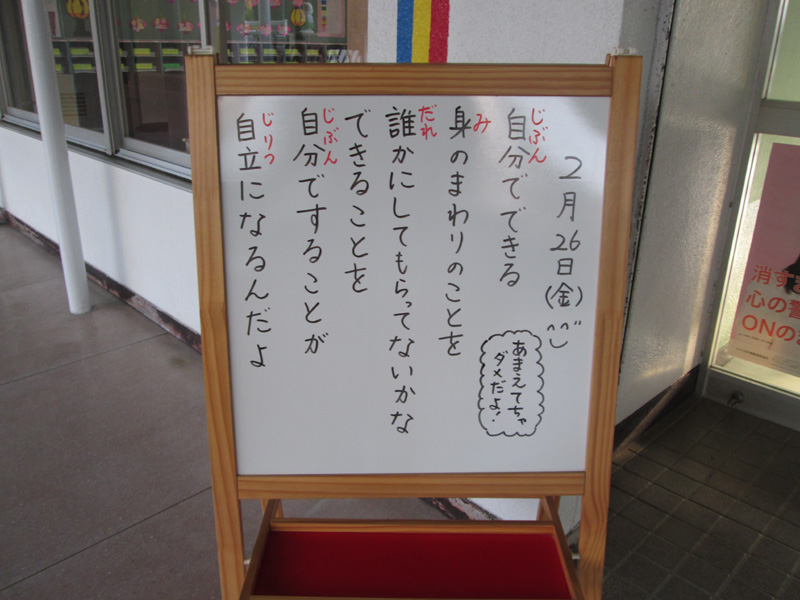 2月26日(金)
自分でできる
じぶん
身のまわりのことを
み
誰かにしてもらってないかな
だれ
できることを
自分ですることが
じぶん
自立になるんだよ
じりつ
あまえてちゃ
ダメだよ!
消す
心の警
ONの